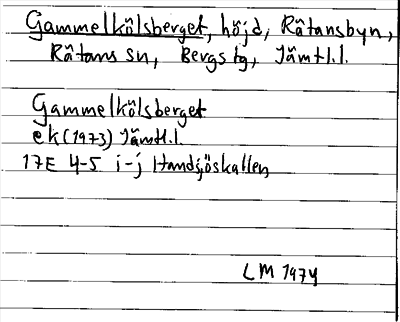 Gammelkölsberget, höjd, Råtansbyn,
Råtans sn, Bergs tg, Jämtl.l.
Gammelkölsberget
ek (1973) Jämtl.l.
17E 4-5 i-j Handsjöskallen
LM 1974